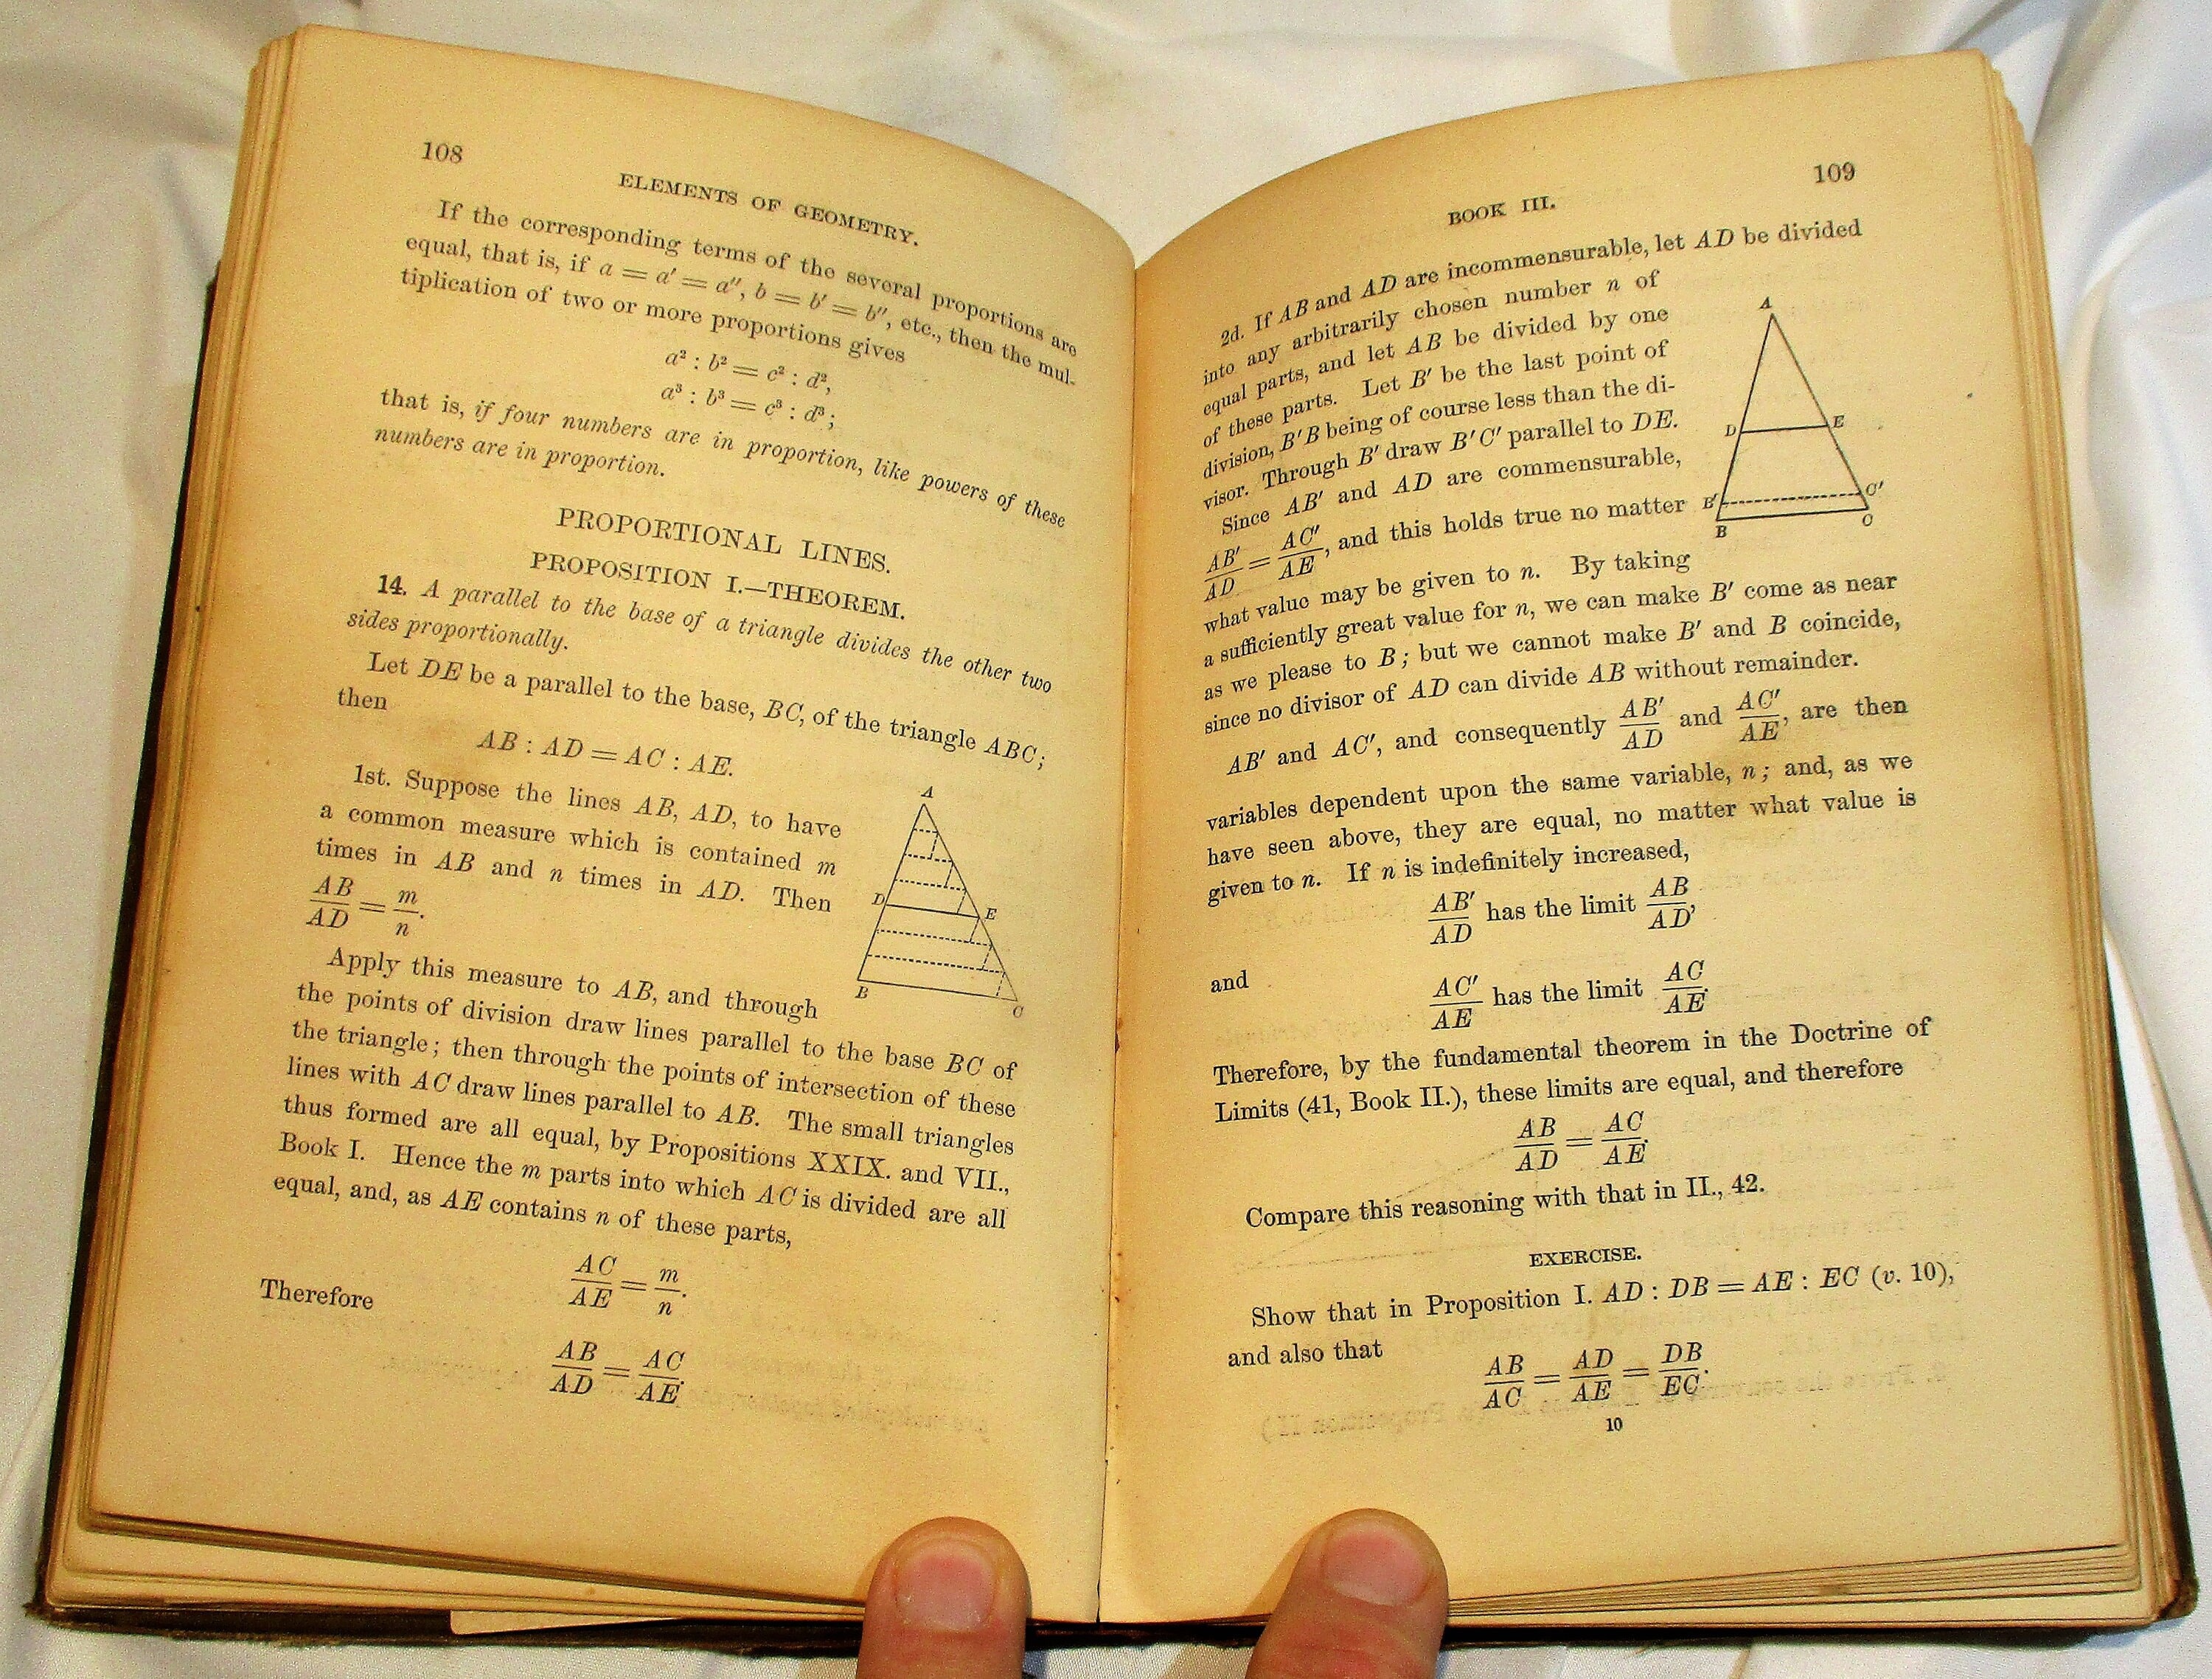 108
ELEMENTS OF GEOMETRY.
If the corresponding terms of the several proportions are
equal, that is, if a = a′ = a″, b = b′ = b″, etc., then the mul-
tiplication of two or more proportions gives
a² : b² = c² : d²,
a³ : b³ = c³ : d³;
that is, if four numbers are in proportion, like powers of these
numbers are in proportion.
PROPORTIONAL LINES.
PROPOSITION I.—THEOREM.
14. A parallel to the base of a triangle divides the other two
sides proportionally.
Let DE be a parallel to the base, BC, of the triangle ABC;
then
AB : AD = AC : AE.
1st. Suppose the lines AB, AD, to have
a common measure which is contained m
times in AB and n times in AD. Then
AB/AD = m/n.
A
D
E
B
C
Apply this measure to AB, and through
the points of division draw lines parallel to the base BC of
the triangle; then through the points of intersection of these
lines with AC draw lines parallel to AB. The small triangles
thus formed are all equal, by Propositions XXIX. and VII.,
Book I. Hence the m parts into which AC is divided are all
equal, and, as AE contains n of these parts,
AC/AE = m/n.
Therefore
AB/AD = AC/AE.
BOOK III.
109
2d. If AB and AD are incommensurable, let AD be divided
into any arbitrarily chosen number n of
equal parts, and let AB be divided by one
of these parts. Let B′ be the last point of
division, B′B being of course less than the di-
visor. Through B′ draw B′C′ parallel to DE.
Since AB′ and AD are commensurable,
AB′/AD = AC′/AE, and this holds true no matter
what value may be given to n. By taking
A
D
E
B′
C′
B
C
a sufficiently great value for n, we can make B′ come as near
as we please to B; but we cannot make B′ and B coincide,
since no divisor of AD can divide AB without remainder.
AB′ and AC′, and consequently AB′/AD and AC′/AE, are then
variables dependent upon the same variable, n; and, as we
have seen above, they are equal, no matter what value is
given to n. If n is indefinitely increased,
AB′/AD has the limit AB/AD,
and
AC′/AE has the limit AC/AE.
Therefore, by the fundamental theorem in the Doctrine of
Limits (41, Book II.), these limits are equal, and therefore
AB/AD = AC/AE.
Compare this reasoning with that in II., 42.
EXERCISE.
Show that in Proposition I. AD : DB = AE : EC (v. 10),
and also that
AB/AC = AD/AE = DB/EC.
10